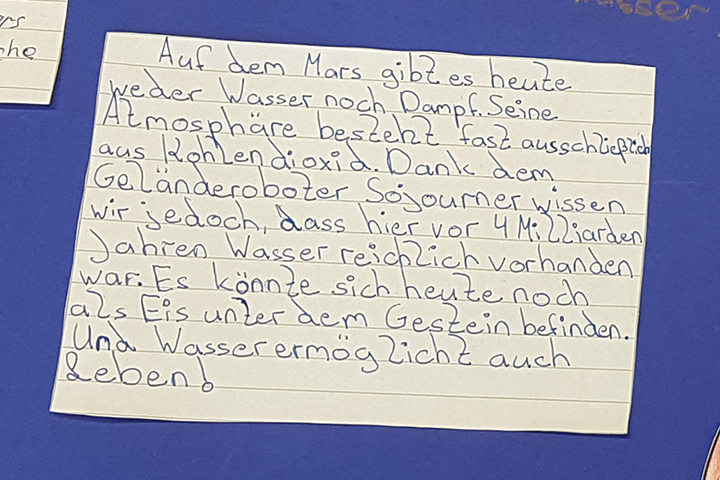 he
asser
Auf dem Mars gibt es heute
weder Wasser noch Dampf. Seine
Atmosphäre besteht fast ausschließlich
aus Kohlendioxid. Dank dem
Geländeroboter Sojourner wissen
wir jedoch, dass hier vor 4 Milliarden
Jahren Wasser reichlich vorhanden
war. Es könnte sich heute noch
als Eis unter dem Gestein befinden.
Und Wasser ermöglicht auch
Leben!